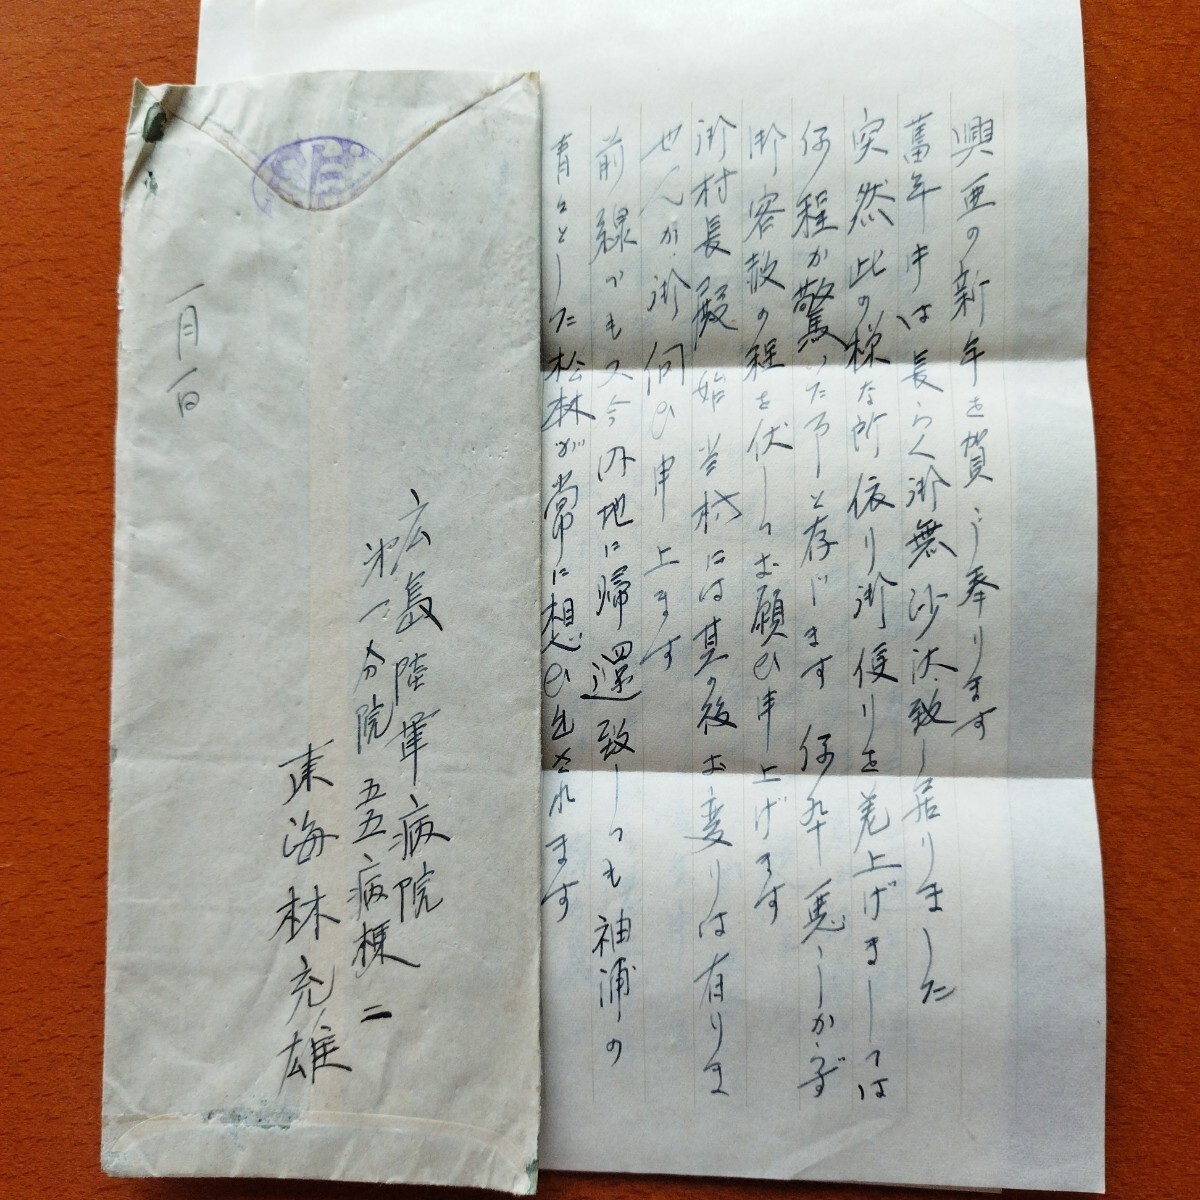 興亜の新年を賀し奉ります
旧年中は長らく御無沙汰致し居りました
突然此の様な所依り御便りを差上げましては
何程か驚いた事と存じます 何卒悪しからず
御容赦の程を伏してお願ひ申上げます
御村長殿始当村には其の後お変りは有りま
せんか御伺ひ申上ます
前線でも又今内地に帰還致しても袖浦の
青々とした松林が常に想ひ出されます
一月一日
広島陸軍病院
第一分院五五病棟二
東海林充雄